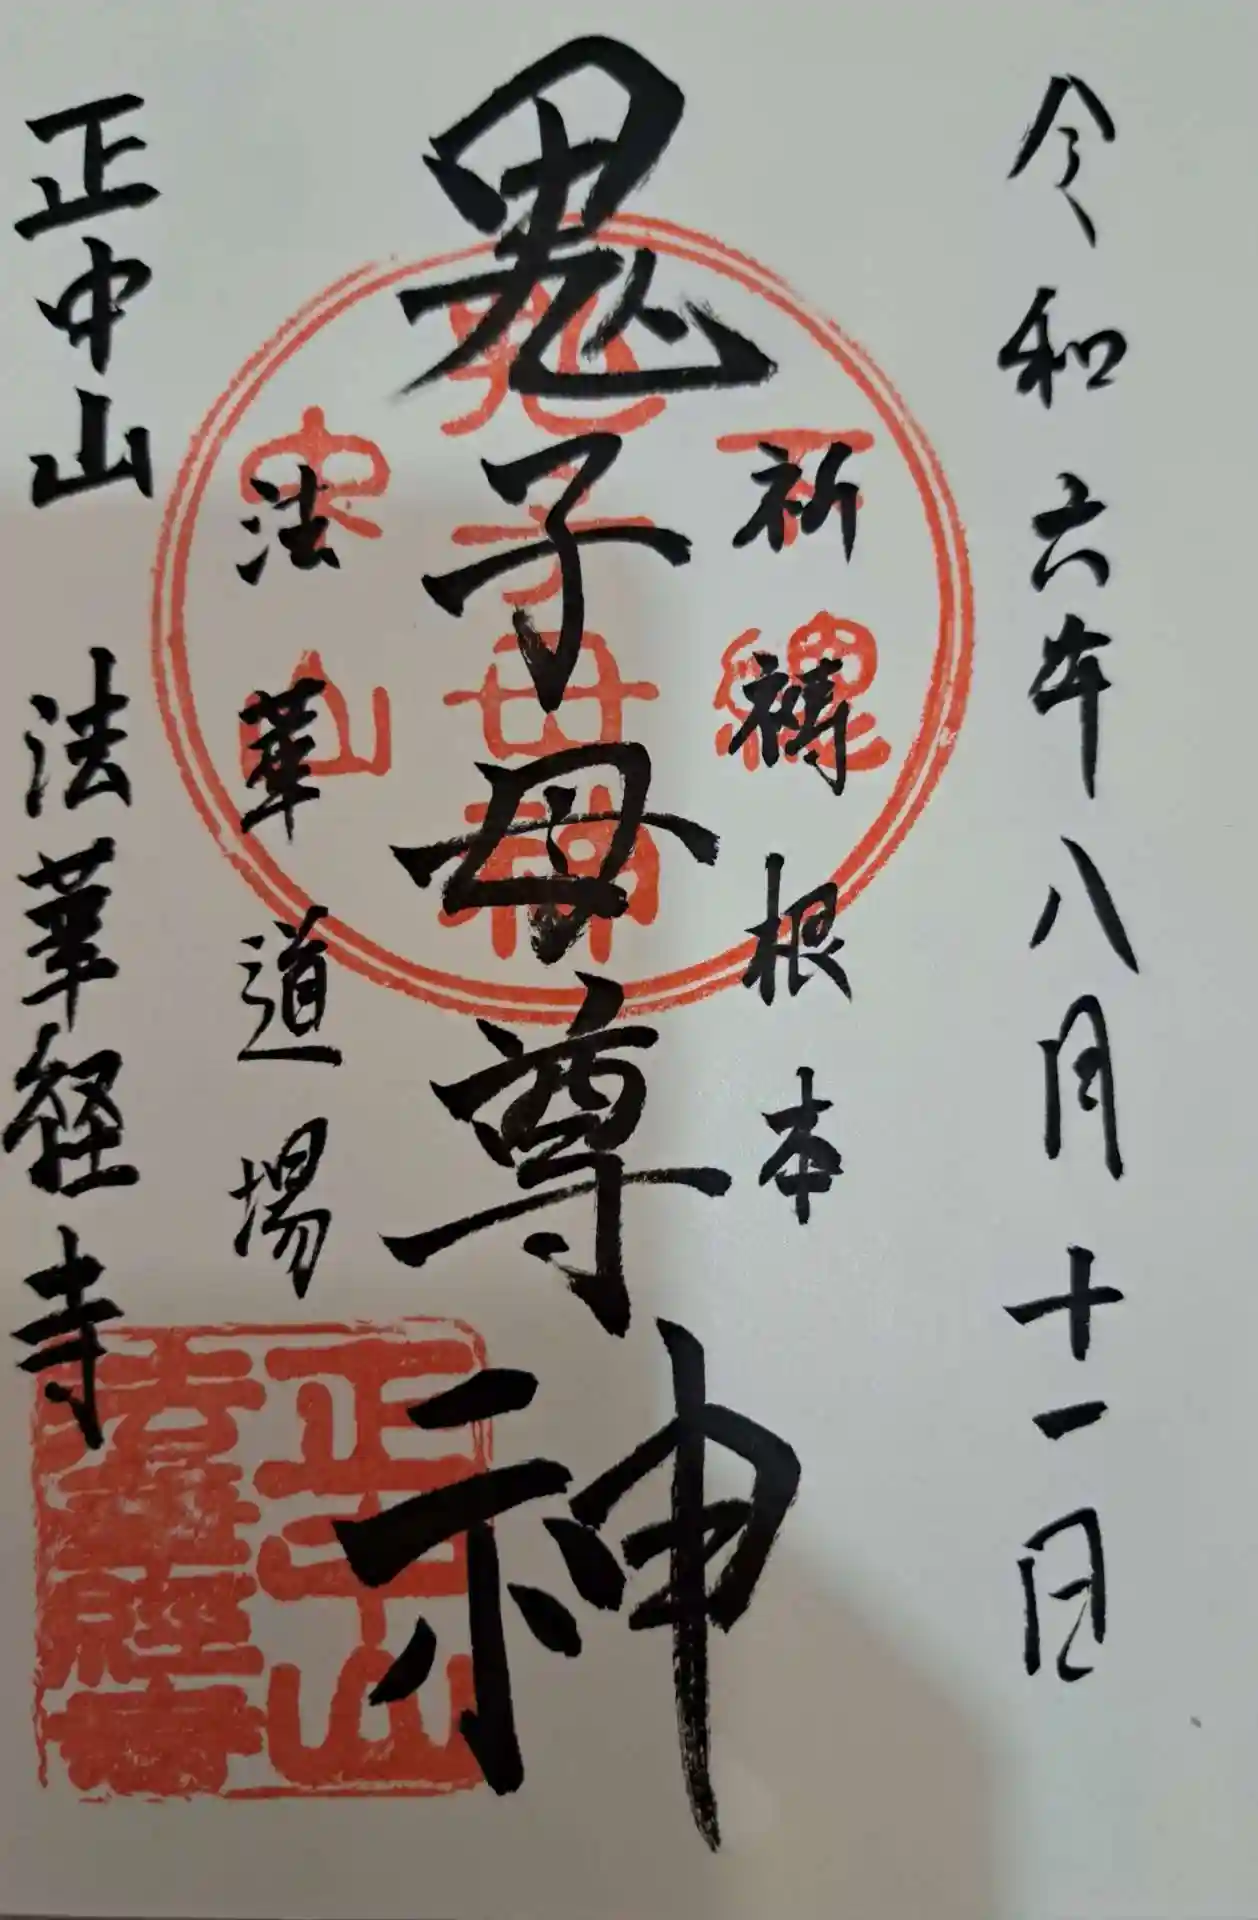 令和六年八月十一日
祈祷根本
鬼子母尊神
法華道場
正中山 法華経寺
鬼子母神
正中山
法華經寺